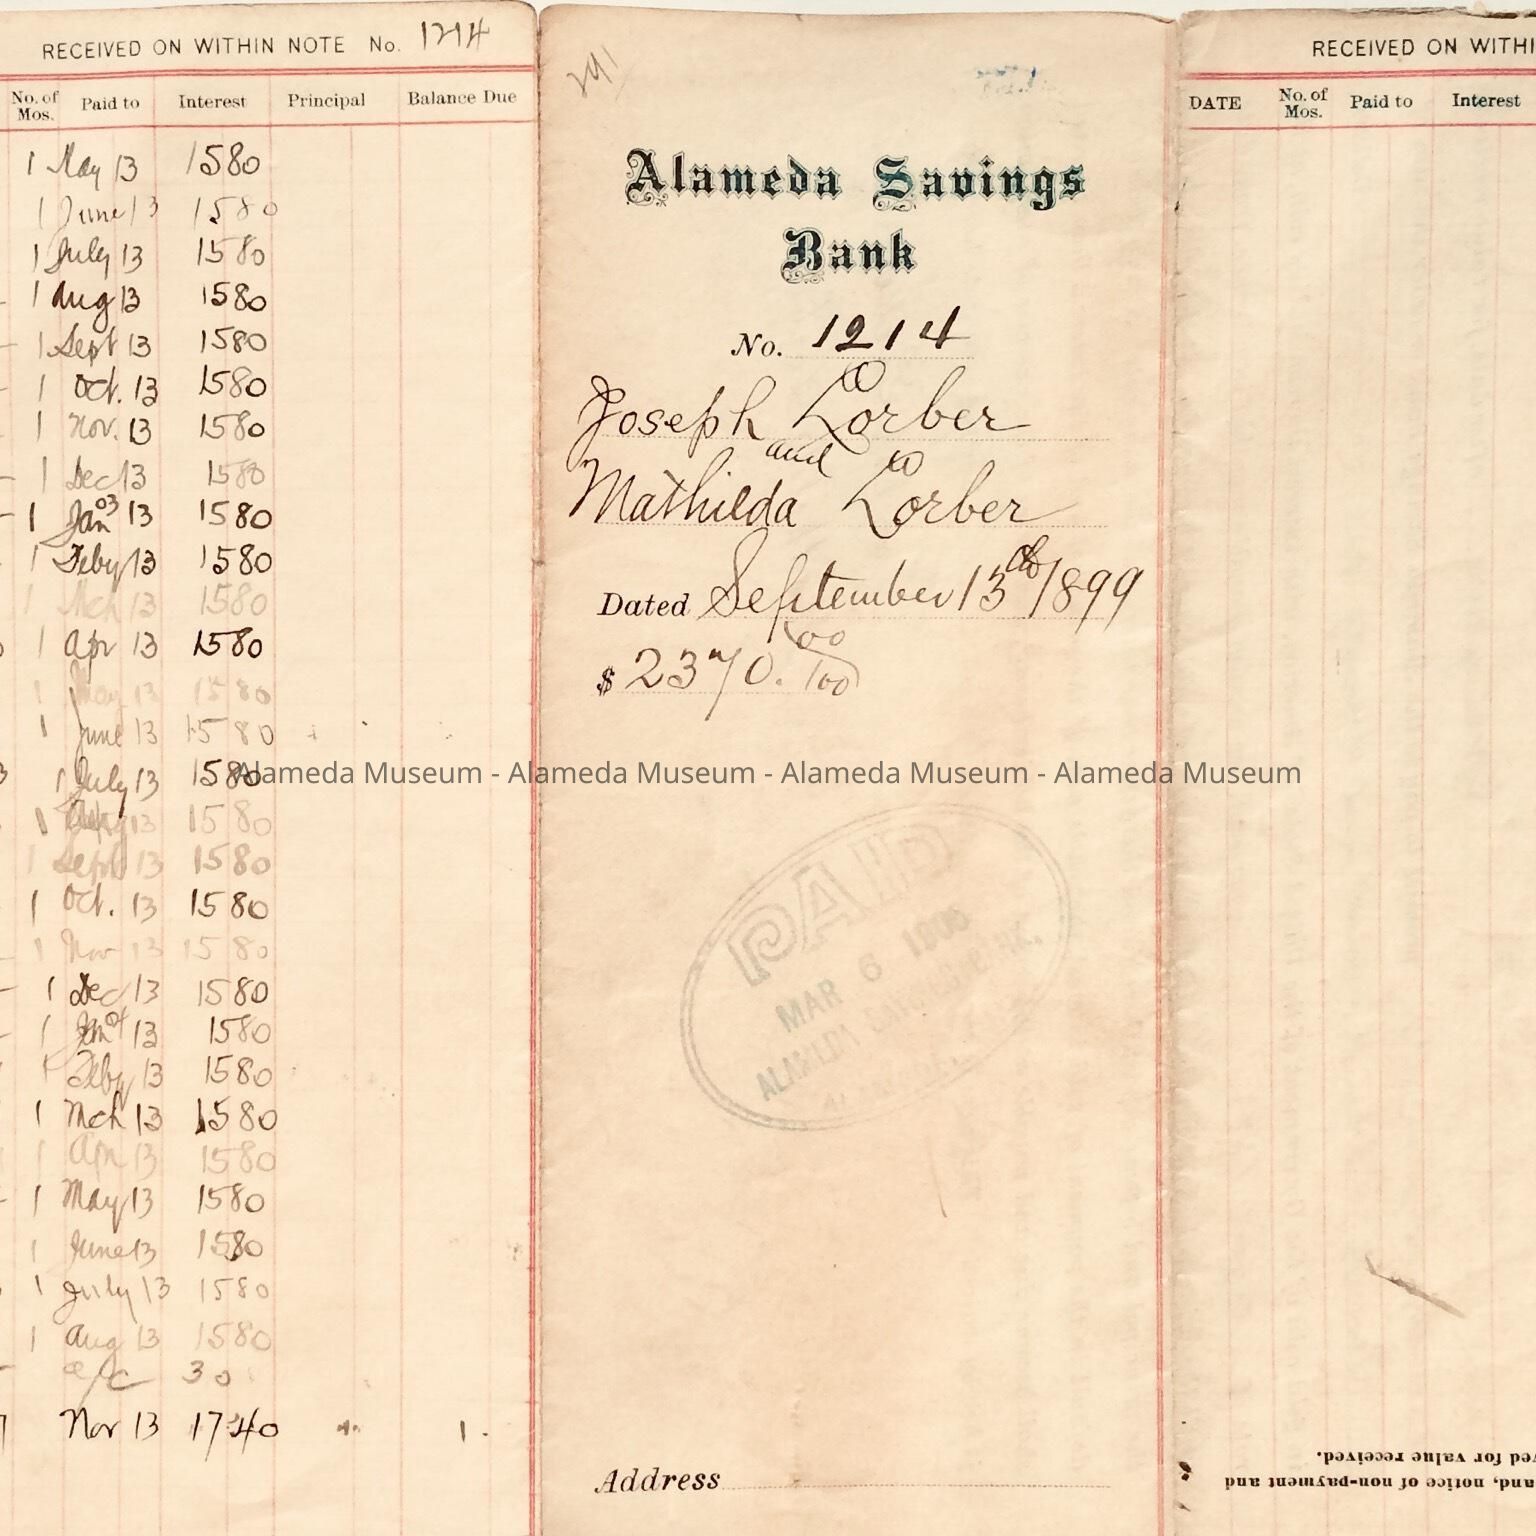 RECEIVED ON WITHIN NOTE No. 1214
No. of Mos. Paid to Interest Principal Balance Due
1 May 13 15 80
1 June 13 15 80
1 July 13 15 80
1 Aug 13 15 80
1 Sept 13 15 80
1 Oct. 13 15 80
1 Nov. 13 15 80
1 Dec 13 15 80
1 Jan 03 13 15 80
1 Feby 13 15 80
1 Mch 13 15 80
1 Apr 13 15 80
1 May 13 15 80
1 June 13 15 80
1 July 13 15 80
1 Aug 13 15 80
1 Sept 13 15 80
1 Oct. 13 15 80
1 Nov 13 15 80
1 Dec 13 15 80
1 Jan 04 13 15 80
1 Feby 13 15 80
1 Mch 13 15 80
1 Apr 13 15 80
1 May 13 15 80
1 June 13 15 80
1 July 13 15 80
1 Aug 13 15 80
a/c 30
Nov 13 17 40 1.
291
Alameda Savings
Bank
No. 1214
Joseph Lorber
and
Mathilda Lorber
Dated September 13th 1899
$ 2370. 00/100
Alameda Museum - Alameda Museum - Alameda Museum - Alameda Museum
PAID
MAR 6
ALAMEDA SAVINGS BANK.
Address
RECEIVED ON WITHI
DATE No. of Mos. Paid to Interest
and, notice of non-payment and
ved for value received.